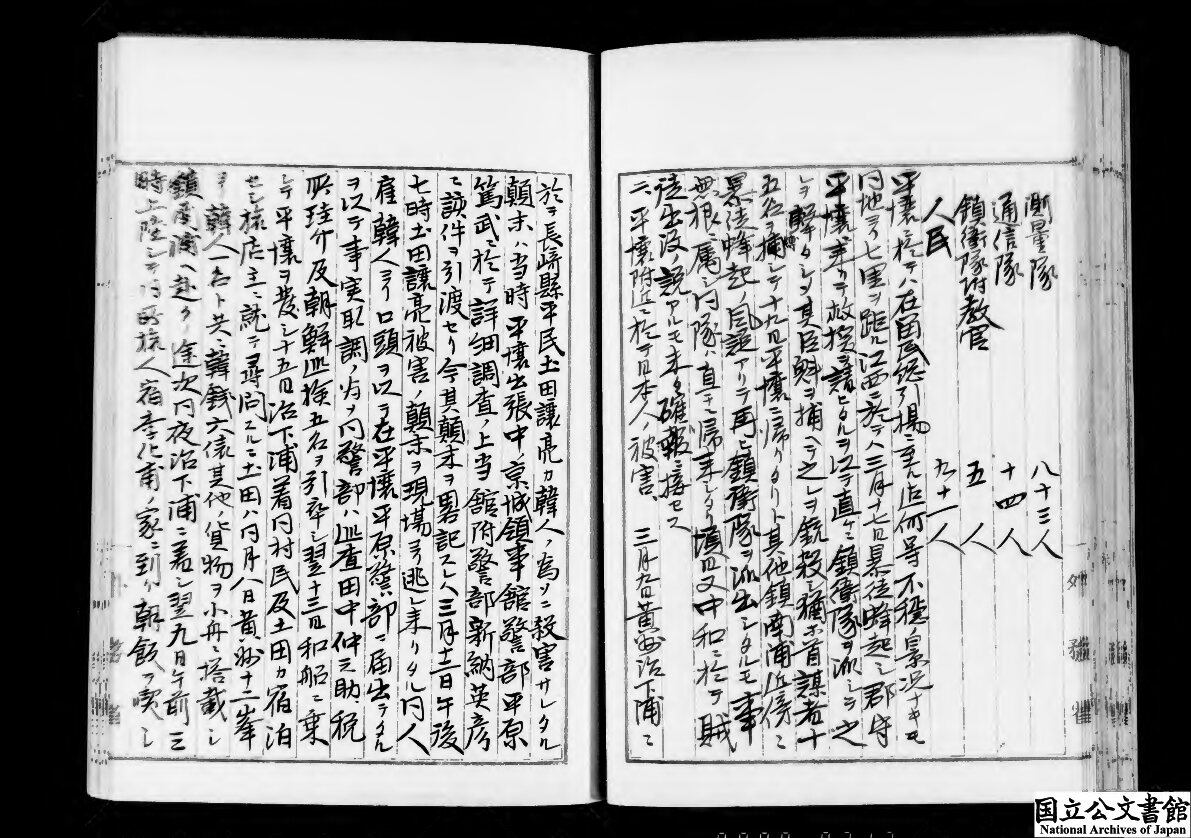 測量隊　八十三人
通信隊　十四人
鎮衛隊附教官　五人
人民　九十一人
平壌ニ於テハ在留民総引揚ニ至ル迄何等不穏ノ景況ナキモ
同地ヲ七里ヲ距ル江西ニ於テハ三月十七日暴徒蜂起シ郡守
平壌ニ来リテ救援ヲ請ヒタルヲ以テ直ニ鎮衛隊ヲ派シテ之
レヲ解タシメ其臣魁ヲ捕ヘテ之レヲ銃殺シ猶ホ首謀者十
五名ヲ捕ヘテ十九日平壌ニ帰リタリト其他鎮南浦近傍ニ
暴徒蜂起ノ風説アリテ再ヒ鎮衛隊ヲ派出シタルモ事
無根ニ属シ同隊ハ直チニ帰来シタリ頃日又中和ニ於テ賊
徒出没ノ説アルモ未タ確報ニ接セス
二、平壌附近ニ於テ日本人ノ被害　三月九日黄州治下浦ニ
於テ長崎縣平民土田譲亮カ韓人ノ為メニ殺害サレタル
顛末ハ当時平壌出張中ノ京城領事館警部平原
篤武ニ於テ詳細調査ノ上当館附警部新納英彦
ニ該件ヲ引渡セリ今其顛末ヲ畧記スレハ三月十二日午後
七時土田譲亮被害ノ顛末ヲ現場ヨリ逃レ来リタル同人
雇韓人ヨリ口頭ヲ以テ在平壌平原警部ニ届出テタル
ヲ以テ事実取調ノ為メ同警部ハ巡査田中仲之助、税
所珪介及朝鮮巡検五名ヲ引卒シ翌十三日和船ニ乗
シテ平壌ヲ発シ十五日治下浦着同村民及土田カ宿泊
セシ旅店主ニ就テ尋問スルニ土田ハ同月八日黄州十二峯
ヨリ韓人一名ト共ニ韓銭六俵其他ノ貨物ヲ小舟ニ搭載シ
鎮南浦ヘ赴クノ途次同夜治下浦ニ着シ翌九日午前三
時上陸シテ同所旅人宿李化甫ノ家ニ到リ朝飯ヲ喫シ
外務省
国立公文書館
National Archives of Japan